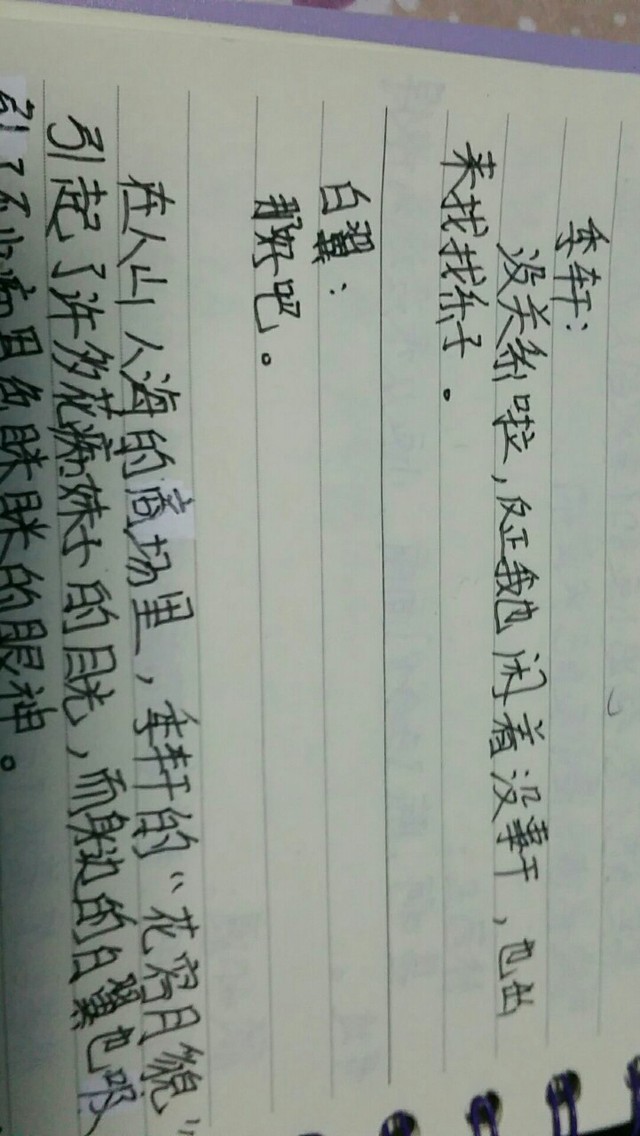 牵轩：
没关系啦，反正我也闲着没事干，也出
来找找乐子。
白翼：
那好吧。
在人山人海的商场里，牵轩的“花容月貌”
引起了许多花痴妹子的目光，而身边的白翼也吸
引了不少色眯眯的眼神。